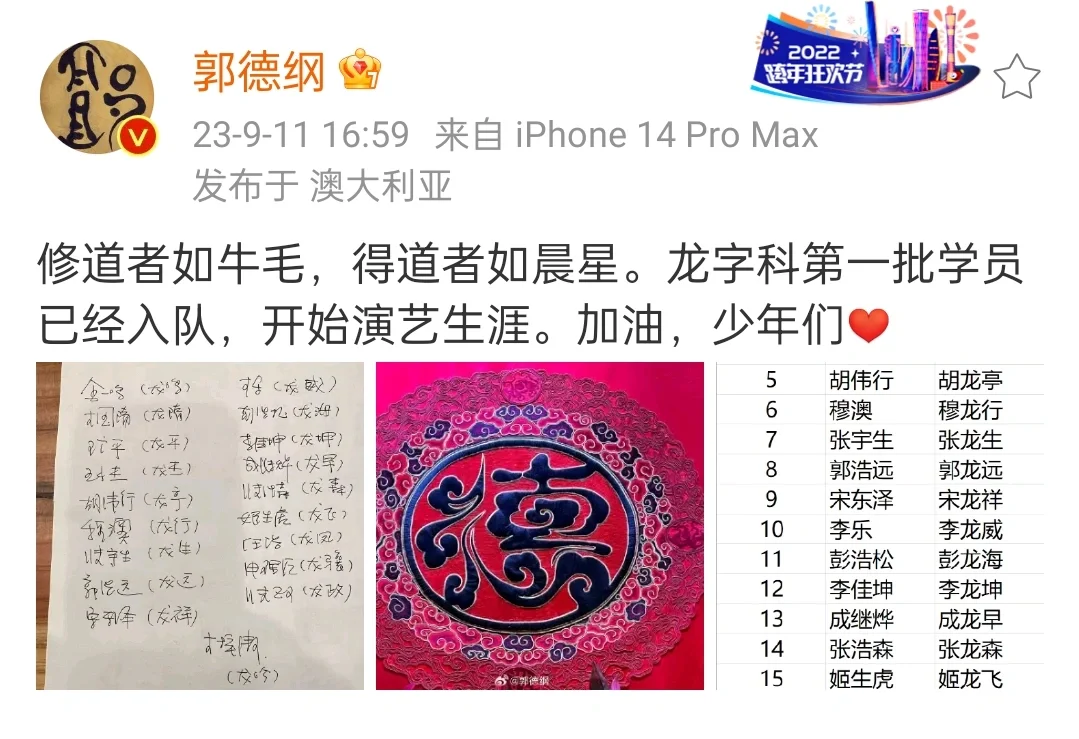 郭德纲
2022
跨年狂欢节
23-9-11 16:59 来自 iPhone 14 Pro Max
发布于 澳大利亚
修道者如牛毛，得道者如晨星。龙字科第一批学员
已经入队，开始演艺生涯。加油，少年们❤️
胡伟行（龙亭）
（龙行）
（龙生）
郭浩远（龙远）
（龙祥）
（龙威）
（龙海）
李佳坤（龙坤）
（龙早）
（龙森）
姬生虎（龙飞）
德
@郭德纲
5 胡伟行 胡龙亭
6 穆澳 穆龙行
7 张宇生 张龙生
8 郭浩远 郭龙远
9 宋东泽 宋龙祥
10 李乐 李龙威
11 彭浩松 彭龙海
12 李佳坤 李龙坤
13 成继烨 成龙早
14 张浩森 张龙森
15 姬生虎 姬龙飞